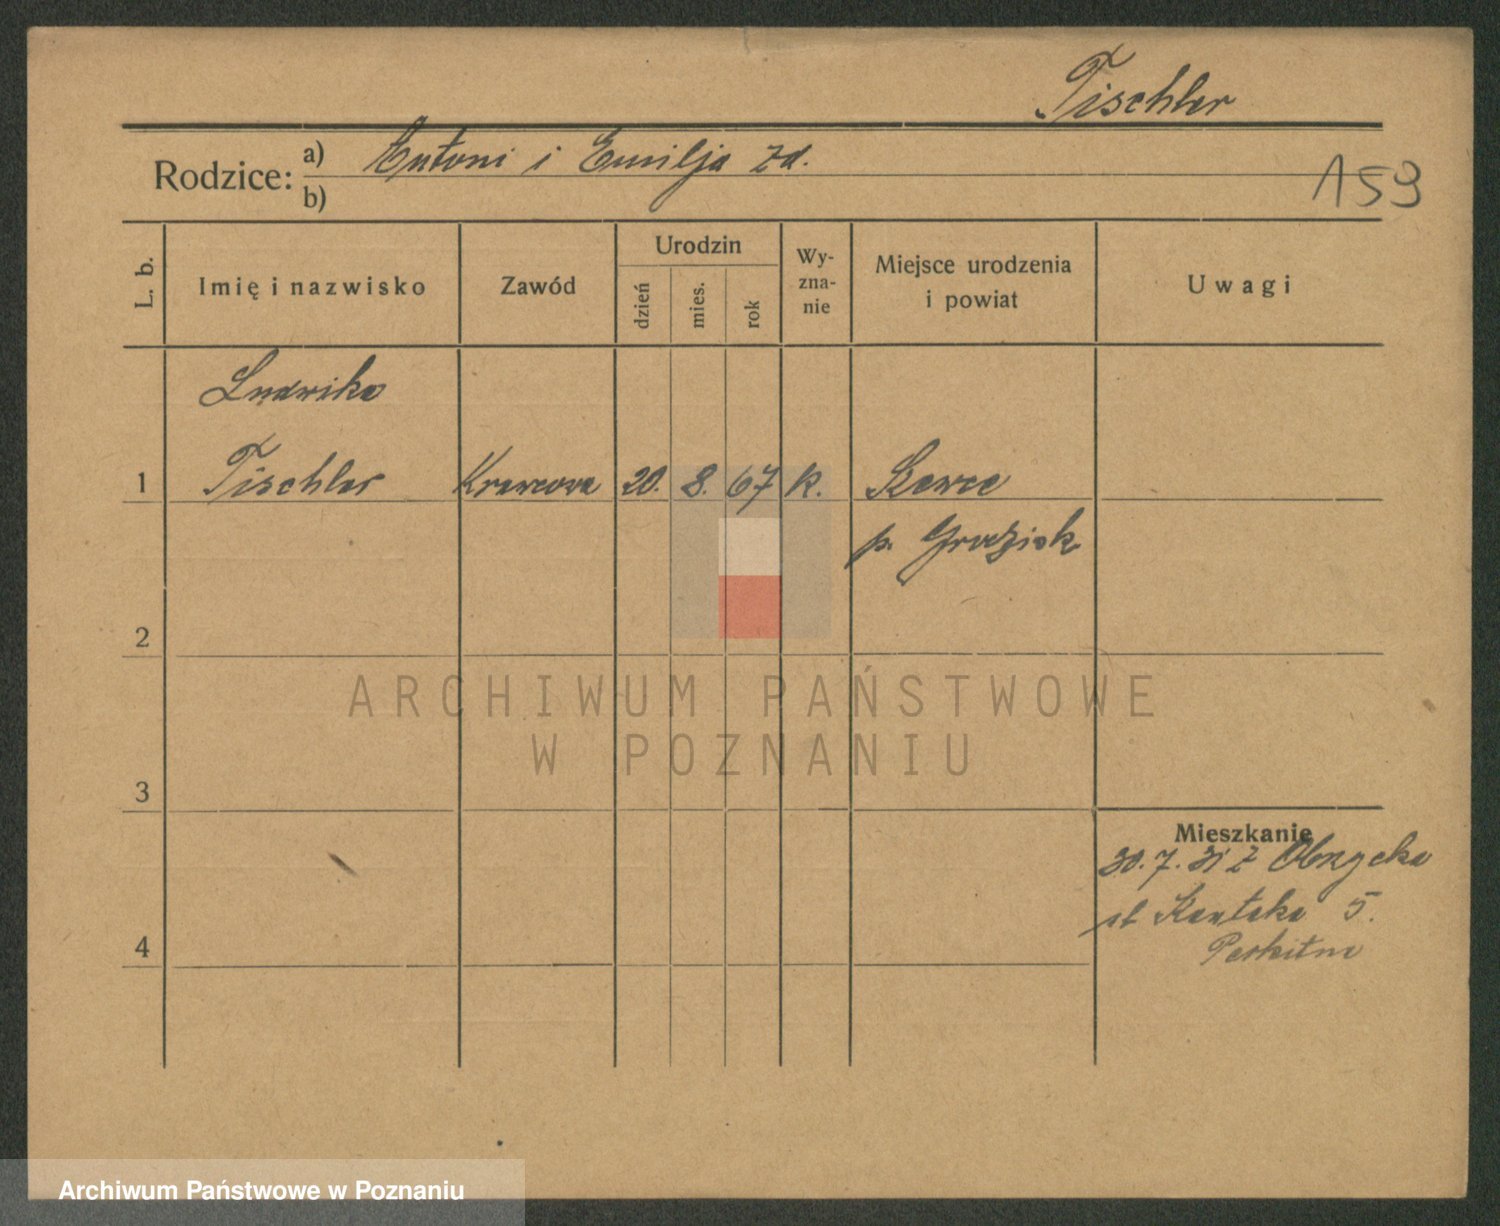 Tischler
Rodzice: a) Antoni i Emilja zd.
b)
159
L. b.
Imię i nazwisko
Zawód
Urodzin
dzień
mies.
rok
Wy-
zna-
nie
Miejsce urodzenia
i powiat
Uwagi
Ludwika
1 Tischler Krawcowa 20. 8. 67 k.
p. Grodzisk
2
3
4
Mieszkanie
30.7.31 z Obrzycka
Kantaka 5.
ARCHIWUM PAŃSTWOWE
W POZNANIU
Archiwum Państwowe w Poznaniu